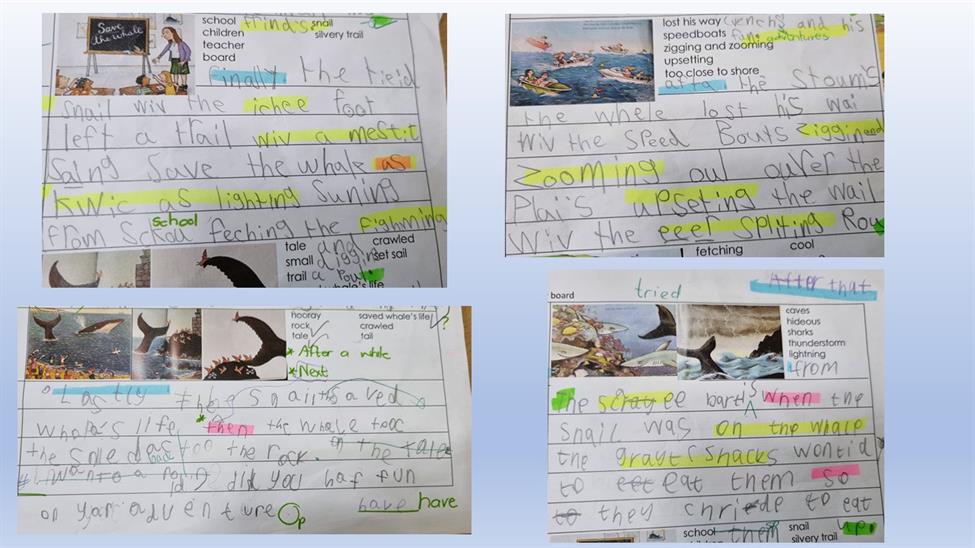 Save
the whale
school friends snail
children silvery trail
teacher
board
Finally the tieid
snail wiv the ichee foot
left a trail wiv a mestic
Saing Save the whale as
Kwic as lighting Suning
school
from School feching the fighming
tale and crawled
small digging set sail
trail a
whale's life
lost his way and his
speedboats fun adventures
zigging and zooming
upsetting
too close to shore
atta the Stoums
the whele lost his wai
Wiv the Speed Bouts Ziggin and
Zooming oul oufer the
Plais upseting the wail
Wiv the eeer Spliting Rou
fetching cool
hooray saved whale's life
rock crawled
tale tail
* After a while
* Next
Lastly the snail saved
whales life then the whale tooc
the back too the rock. in the tale
did you haf fun
on your adventure Op have have
board tried After that
caves
hideous
sharks
thunderstorm
lightning
from
The scratee bart is when the
snail was on the whale
the gravt shacks wontid
to eat them so
to they chride to eat
school them snail
silvery trail up